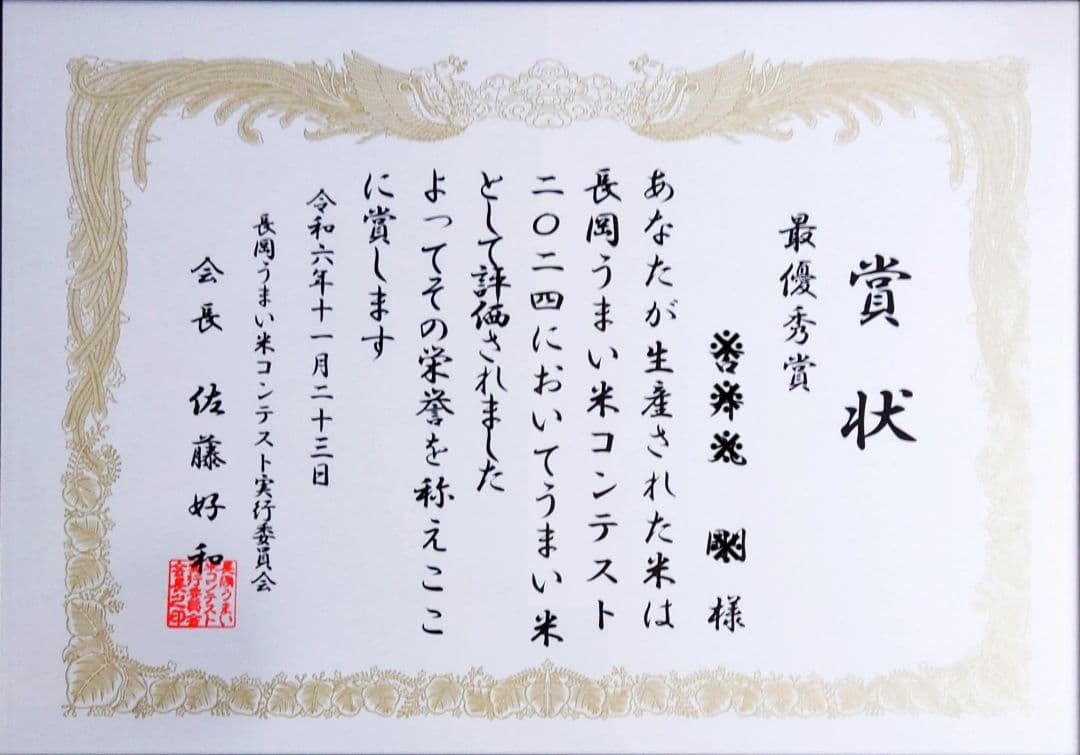 賞状
最優秀賞
様
あなたが生産された米は
長岡うまい米コンテスト
二〇二四においてうまい米
として評価されました
よってその栄誉を称えここ
に賞します
令和六年十一月二十三日
長岡うまい米コンテスト実行委員会
会長 佐藤好和
長岡うまい
米コンテスト
実行委員会
会長之印